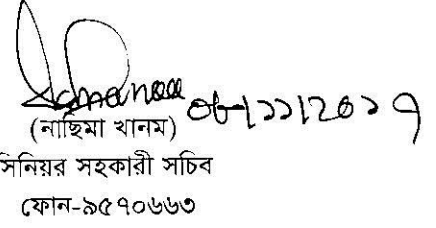 ০৮/১১/২০১৭
(নাছিমা খানম)
সিনিয়র সহকারী সচিব
ফোন-৯৫৭০৬৬৩